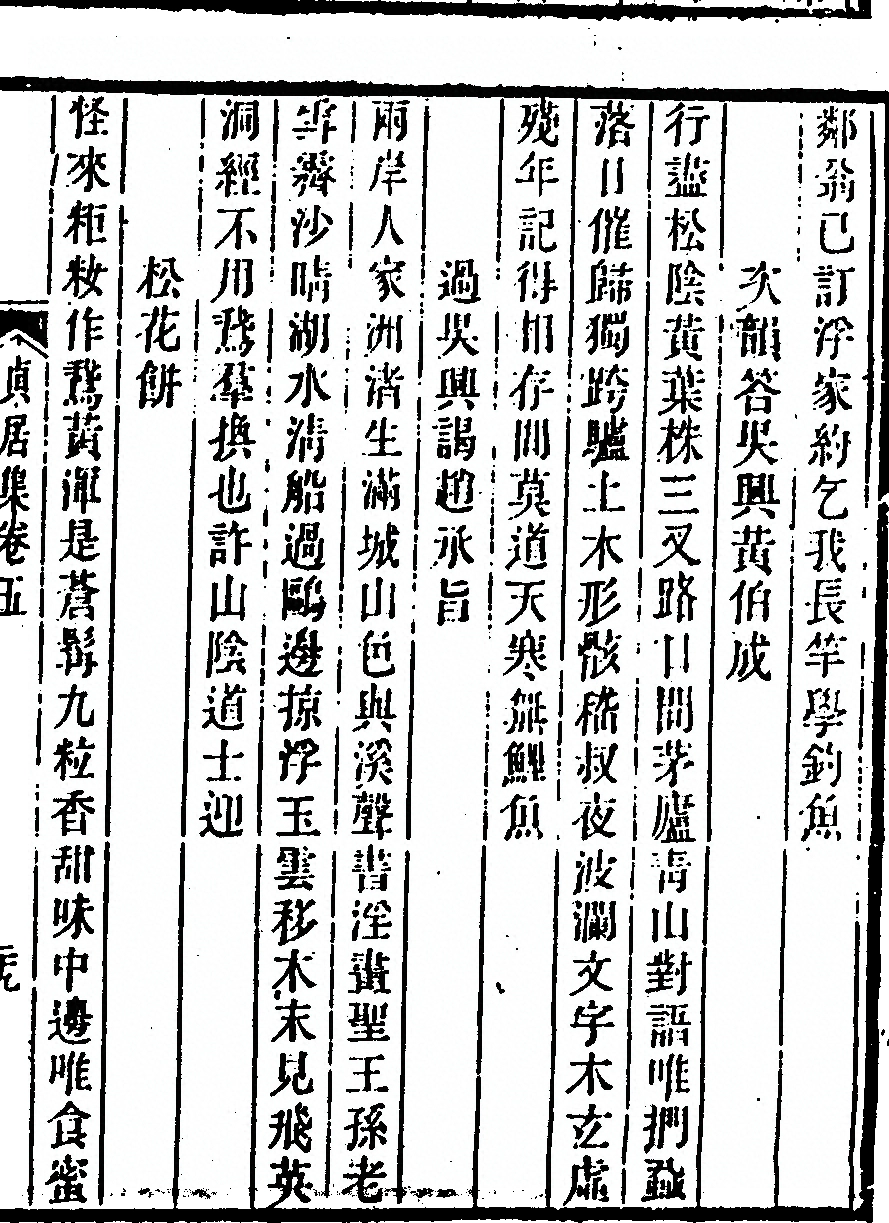 鄰翁已訂浮家約乞我長竿學釣魚
次韻答吳興黄伯成
行盡松陰黄葉株三叉路口問茅廬青山對語唯捫蝨
落日催歸獨跨驢土木形骸嵇叔夜波瀾文字木玄虛
殘年記得相存問莫道天寒無鯉魚
過吳興謁趙承旨
兩岸人家洲渚生滿城山色與溪聲書淫畫聖王孫老
霽沙晴湖水清船過鷗邊掠浮玉雲移木末見飛英
洞經不用鵞羣換也許山陰道士迎
松花餅
怪來粔籹作鵞黄渾是蒼髯九粒香甜味中邊唯食蜜
貞居集卷五